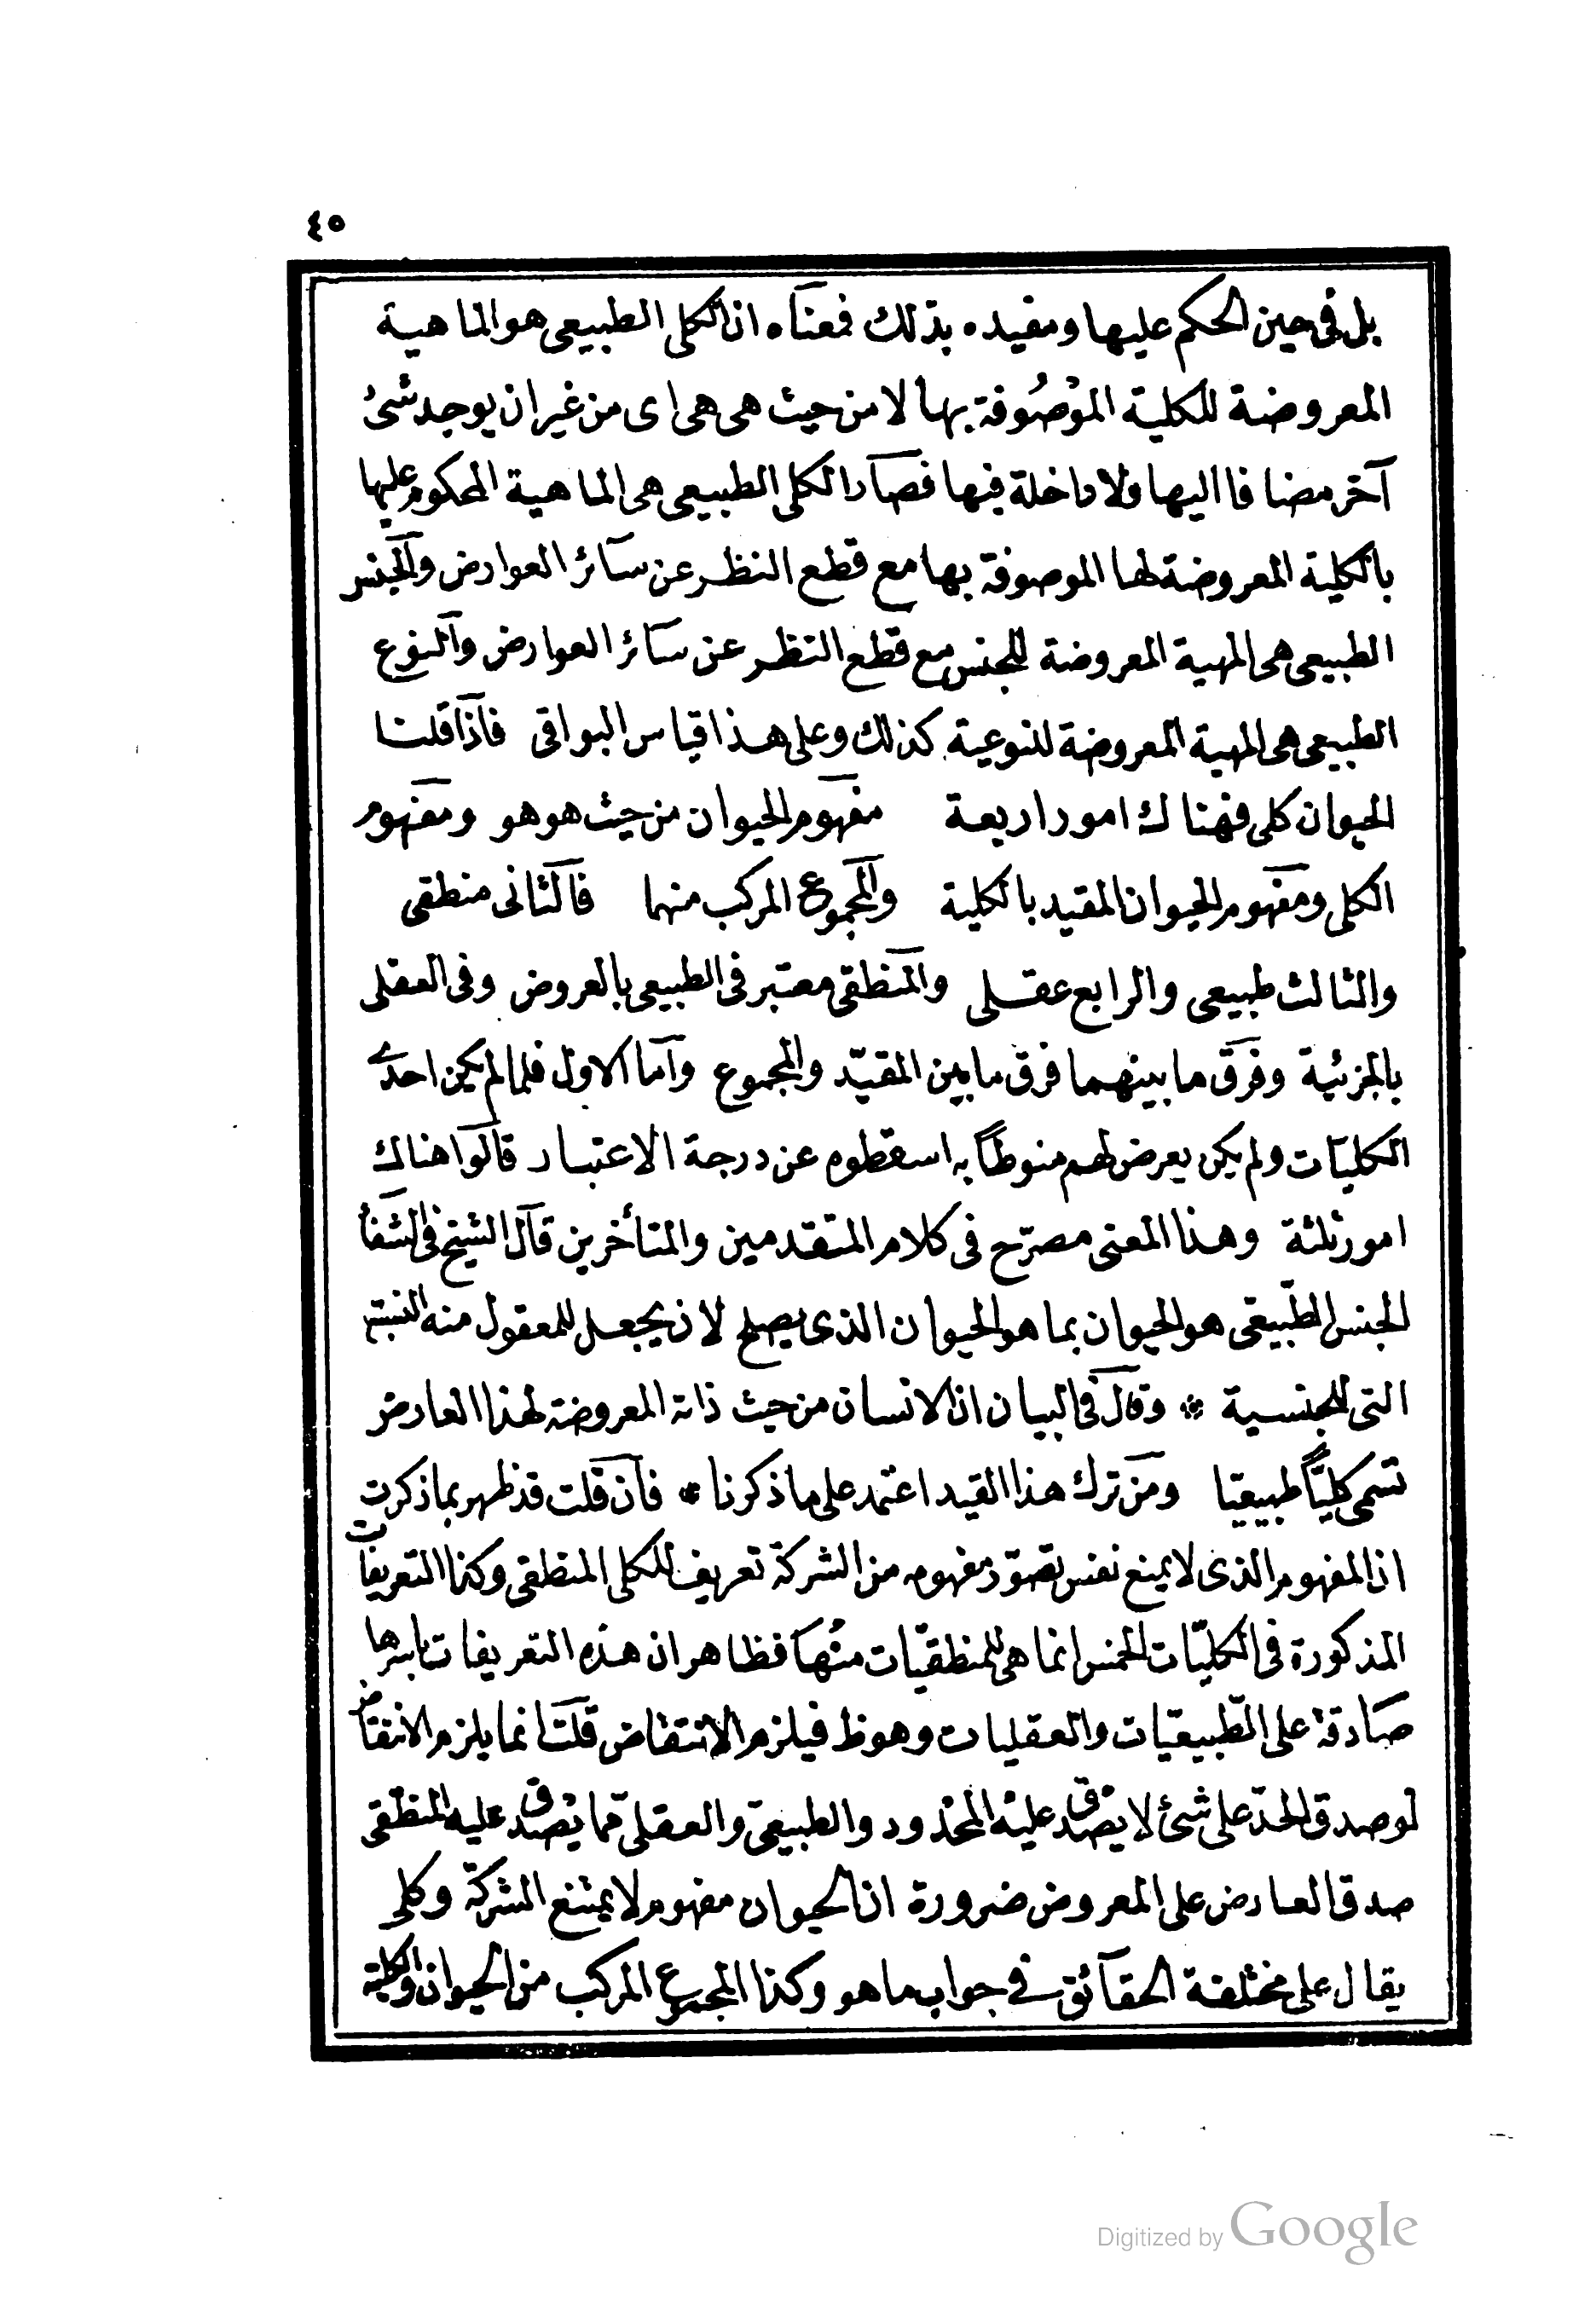 ٤٥
بل فى حين الحكم عليها ومقيده بذلك فمعناه ان الكلى الطبيعى هو الماهية
المعروضة للكلية الموْصُوفة بها لا من حيث هى هى اى من غير ان يوجد شئ
آخر مضافا اليها ولا داخلة فيها فصار الكلى الطبيعى هى الماهية المحكوم عليها
بالكلية المعروضة لها الموصوفة بها مع قطع النظر عن سائر العوارض والجنس
الطبيعى هى المهية المعروضة للجنس مع قطع النظر عن سائر العوارض والنوع
الطبيعى هى المهية المعروضة للنوعية كذلك وعلى هذا قياس البواقى فاذا قلنا
الحيوان كلى فهناك امور اربعة مفهوم الحيوان من حيث هو هو ومفهوم
الكلى ومفهوم الحيوان المقيد بالكلية والمجموع المركب منهما فالثانى منطقى
والثالث طبيعى والرابع عقلى والمنطقى معتبر فى الطبيعى بالعروض وفى العقلى
بالجزئية وفرق ما بينهما فرق ما بين المقيّد والمجموع واما الاول فلما لم يكن احدى
الكليات ولم يكن يعرض لهم منوطاً به اسقطوه عن درجة الاعتبار قالوا هناك
امور ثلثة وهذا المعنى مصرّح فى كلام المتقدمين والمتأخرين قال الشيخ فى الشفأ
الجنس الطّبيعى هو الحيوان بما هو الحيوان الذى يصلح لان يجعل للمعقول منه النسبة
التى للجنسية * وقال فى البيان ان الانسان من حيث ذاته المعروضة لهذا العارض
تسمى كليّاً طبيعيا ومن ترك هذا القيد اعتمد على ما ذكرنا * فان قلت قد ظهر بما ذكرت
ان المفهوم الذى لا يمنع نفس تصوّر مفهومه من الشركة تعريف للكلى المنطقى وكذا التعريفات
المذكورة فى الكليّات الخمس انما هى للمنطقيّات منها فظاهر ان هذه التعريفات باسرها
صادقة على الطّبيعيّات والعقليات وهو ظ فيلزم الانتقاض قلت انما يلزم الانتقاض
لو صدق الحدّ على شئ لا يصْدق عليْه المحْدود والطبيعىّ والعقلىّ ممّا يصْدق عليه المنطقى
صدق العارض على المعروض ضرورة ان الحيوان مفهوم لا يمتنع الشركة وكلى
يقال على مختلفة الحقائق فى جواب ما هو وكذا المجموع المركب من الحيوان والكلية
Digitized by Google